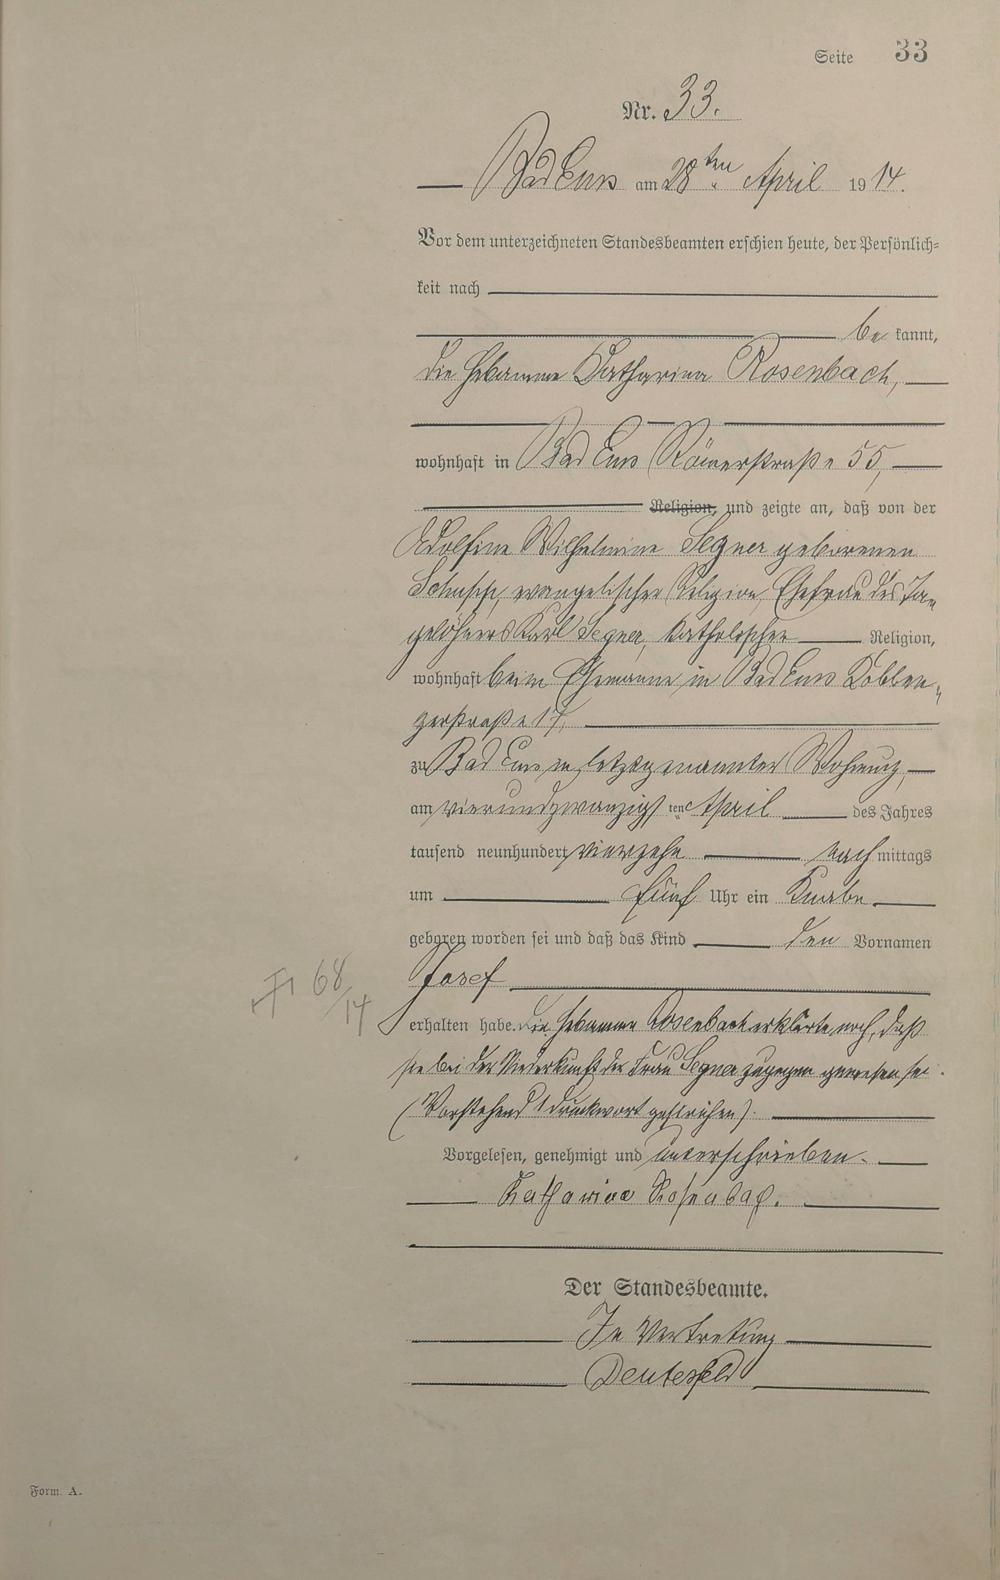 Seite 33
Nr. 33.
Bad Ems am 28ten April 1914.
Vor dem unterzeichneten Standesbeamten erschien heute, der Persönlich-
keit nach
be kannt,
die Hebamme Katharina Rosenbach,
wohnhaft in Bad Ems Römerstraße 55,
Religion, und zeigte an, daß von der
Adolfine Wilhelmine Segner geborenen
evangelischer Religion, Ehefrau des Ta-
gelöhners Karl Segner, katholischer Religion,
wohnhaft beim Ehemanne in Bad Ems Koblen-
zerstraße 17,
zu Bad Ems in letztgenannter Wohnung,
am vierundzwanzigsten April des Jahres
tausend neunhundert vierzehn nachmittags
um fünf Uhr ein Knabe
geboren worden sei und daß das Kind den Vornamen
Josef
68/14
erhalten habe. Die Hebamme Rosenbach erklärte noch, daß
sie bei der Niederkunft der Frau Segner zugegen gewesen sei.
(Vorstehend 1 Druckwort gestrichen).
Vorgelesen, genehmigt und unterschrieben.
Katharina Rosenbach.
Der Standesbeamte.
In Vertretung
Form. A.